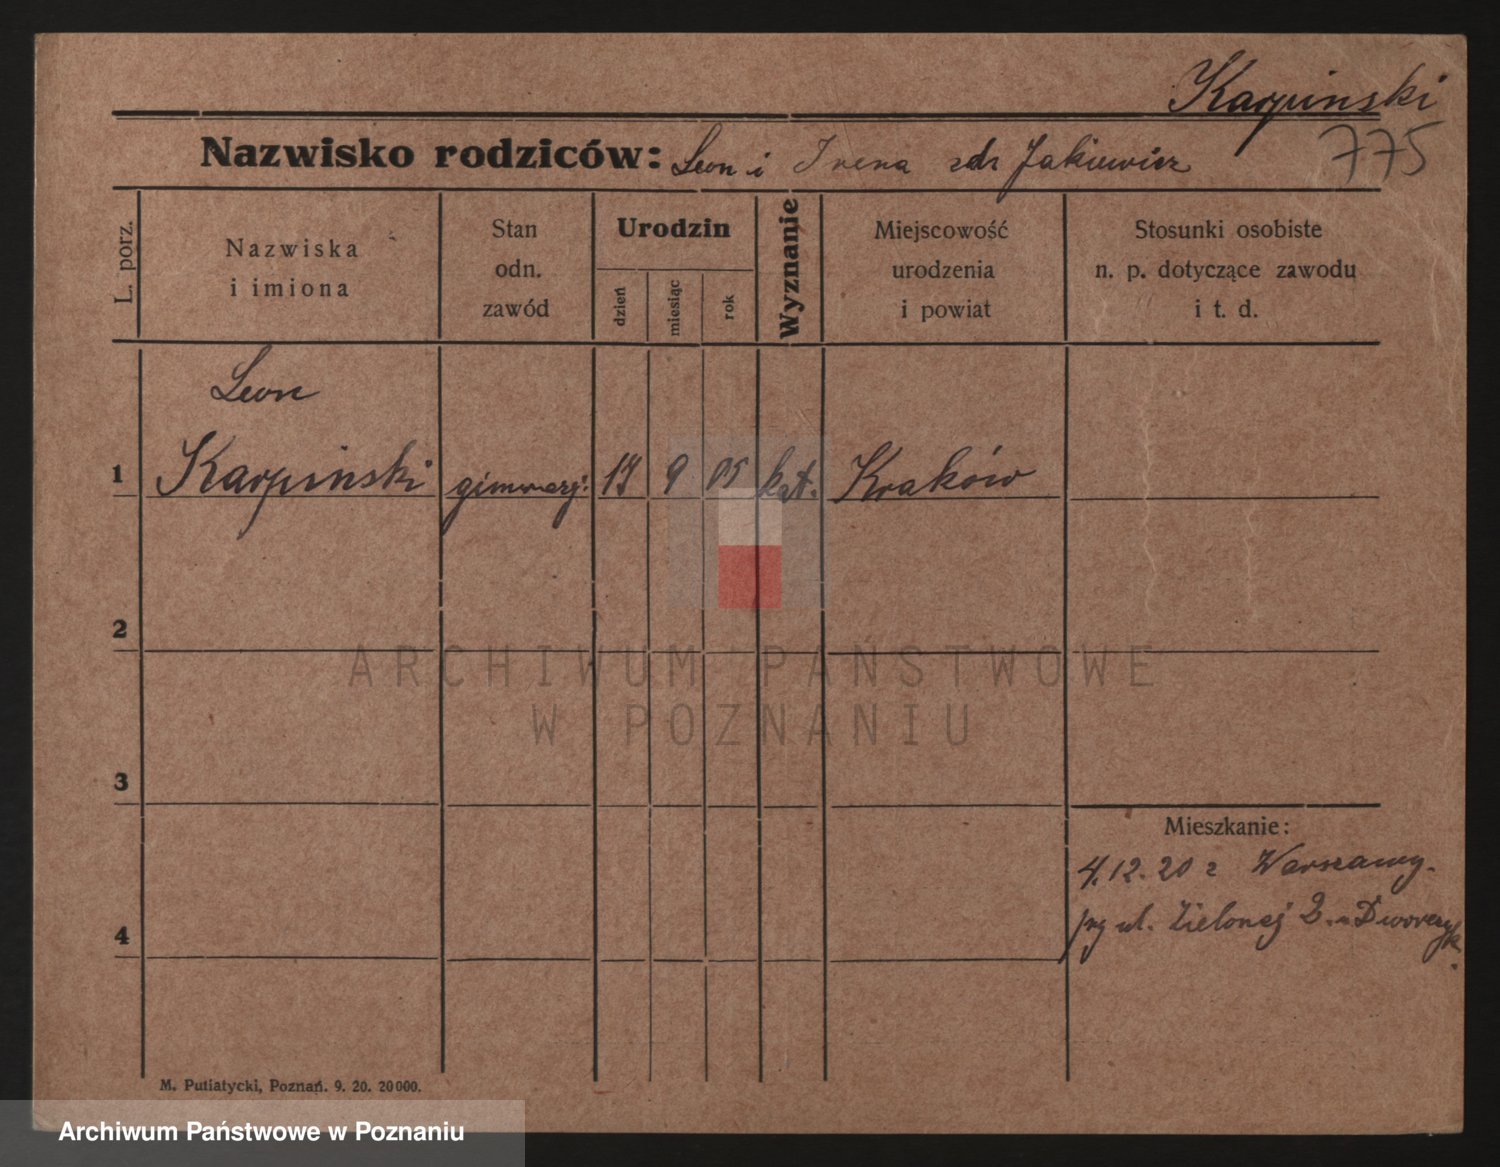 Karpinski
775
Nazwisko rodziców: Leon i Irena zdr Jakiewicz
L. porz.
Nazwiska
i imiona
Stan
odn.
zawód
Urodzin
dzień
miesiąc
rok
Wyznanie
Miejscowość
urodzenia
i powiat
Stosunki osobiste
n. p. dotyczące zawodu
i t. d.
Leon
1 Karpinski 9 05 kat. Kraków
2
3
4
Mieszkanie:
4.12.20 z Warszawy.
ul. Zielonej 2
M. Putiatycki, Poznań. 9. 20. 20000.
ARCHIWUM PAŃSTWOWE
W POZNANIU
Archiwum Państwowe w Poznaniu